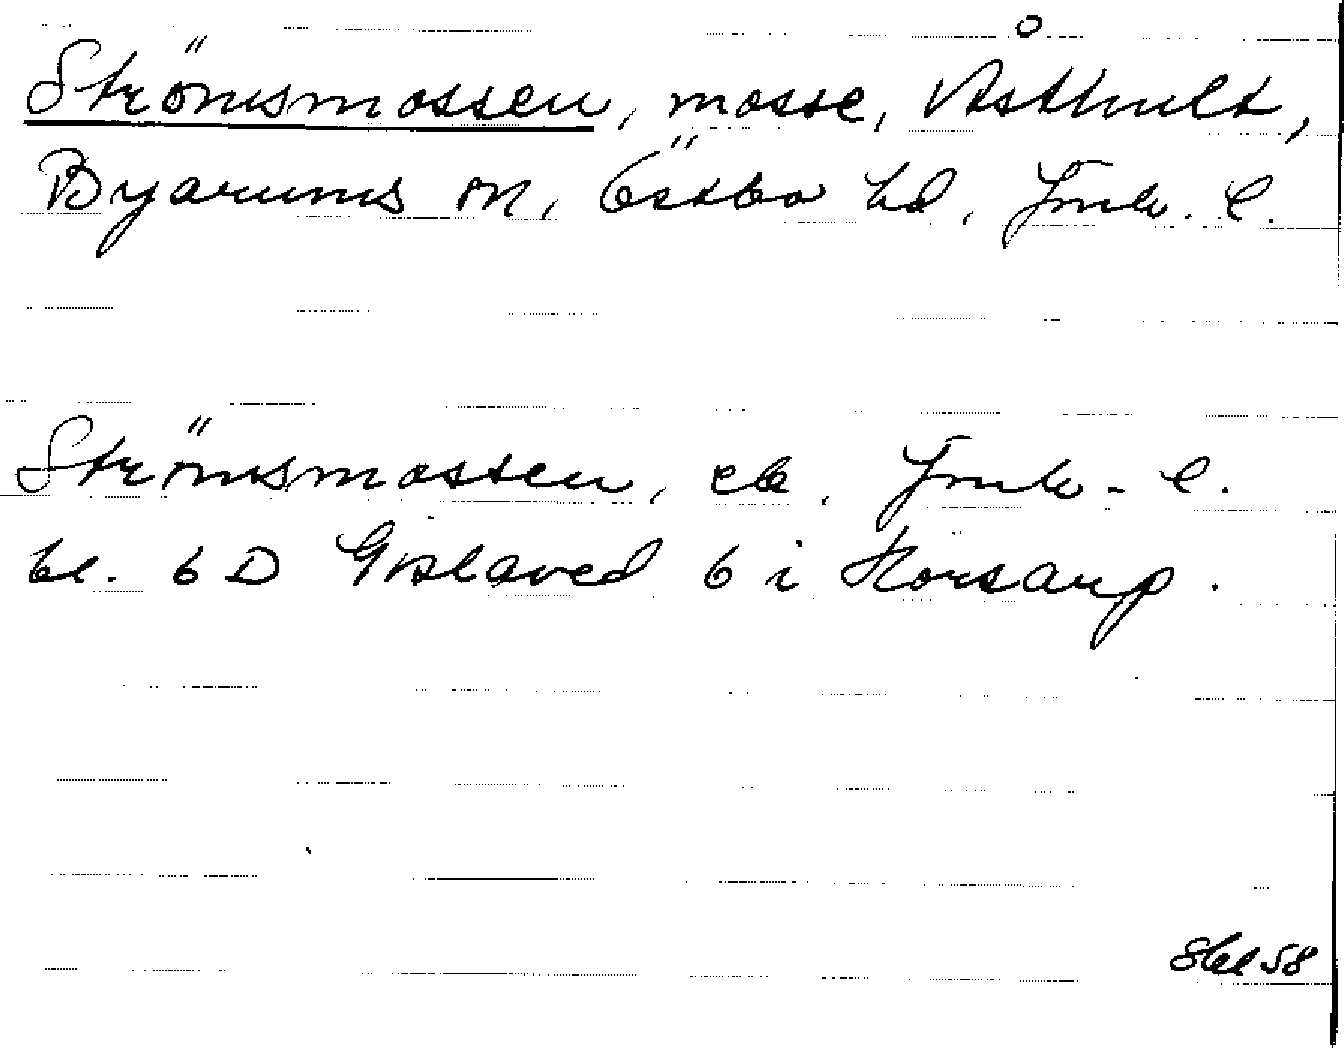 Strömsmossen, mosse, Åsthult,
Byarums sn, Östbo hd, Jönk. l.
Strömsmossen, ek, Jönk. l.
bl. 6 D Gislaved 6 i Horsarp.